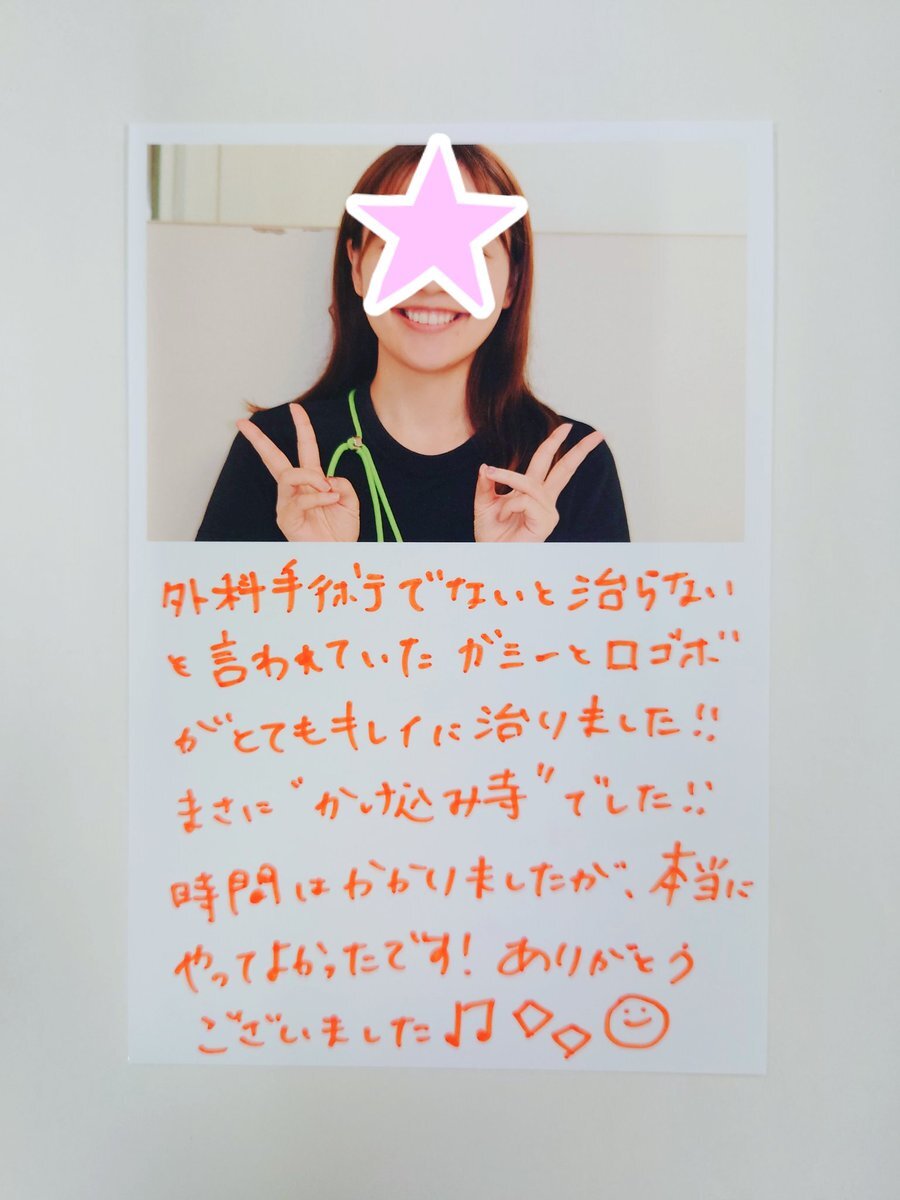 外科手術でないと治らない
と言われていた ガミーと口ゴボ
がとてもキレイに治りました!!
まさに"かけ込み寺"でした!!
時間はかかりましたが、本当に
やってよかったです! ありがとう
ございました♫